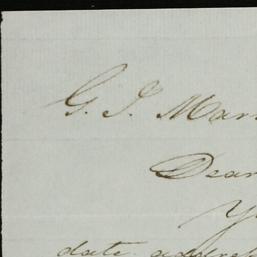 G. I. Mar
Dear
Y
date addres